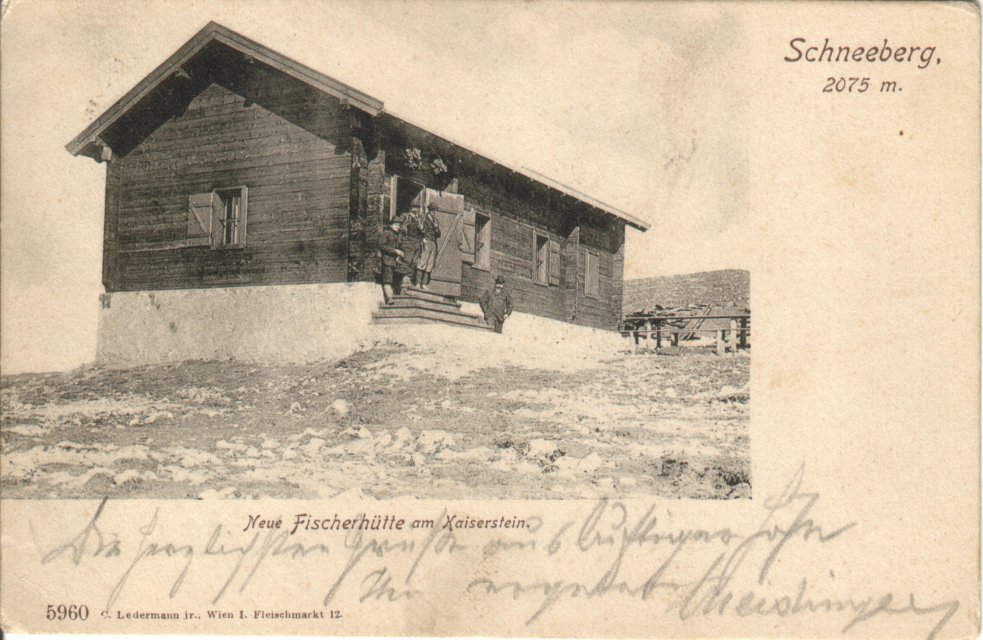 Schneeberg,
2075 m.
Neue Fischerhütte am Kaiserstein.
Die herzlichsten Grüße aus luftiger Höhe
Ihr ergebener Meidinger
5960 C. Ledermann jr., Wien I. Fleischmarkt 12.